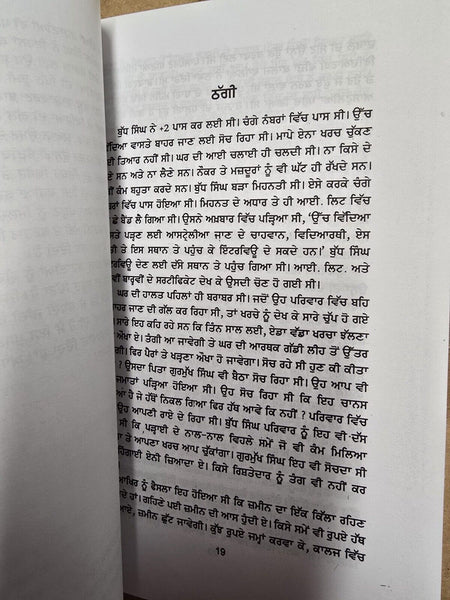 ਠੱਗੀ
ਬੁੱਧ ਸਿੰਘ ਨੇ +2 ਪਾਸ ਕਰ ਲਈ ਸੀ। ਚੰਗੇ ਨੰਬਰਾਂ ਵਿੱਚ ਪਾਸ ਸੀ। ਉੱਚ
ਵਿੱਦਿਆ ਵਾਸਤੇ ਬਾਹਰ ਜਾਣ ਲਈ ਸੋਚ ਰਿਹਾ ਸੀ। ਮਾਪੇ ਏਨਾ ਖਰਚ ਚੁੱਕਣ
ਤਿਆਰ ਨਹੀਂ ਸੀ। ਘਰ ਦੀ ਆਈ ਚਲਾਈ ਹੀ ਚਲਦੀ ਸੀ। ਨਾ ਕਿਸੇ ਦੇ
ਸਨ ਅਤੇ ਨਾ ਲੈਣੇ ਸਨ। ਨੌਕਰ ਤੇ ਮਜ਼ਦੂਰਾਂ ਨੂੰ ਵੀ ਘੱਟ ਹੀ ਰੱਖਦੇ ਸਨ।
ਕੰਮ ਬਹੁਤਾ ਕਰਦੇ ਸਨ। ਬੁੱਧ ਸਿੰਘ ਬੜਾ ਮਿਹਨਤੀ ਸੀ। ਏਸੇ ਕਰਕੇ ਚੰਗੇ
ਵਿੱਚ ਪਾਸ ਹੋਇਆ ਸੀ। ਮਿਹਨਤ ਦੇ ਅਧਾਰ ਤੇ ਹੀ ਆਈ. ਲਿਟ ਵਿੱਚ
ਛੇ ਬੈਂਡ ਲੈ ਗਿਆ ਸੀ। ਉਸਨੇ ਅਖ਼ਬਾਰ ਵਿੱਚ ਪੜ੍ਹਿਆ ਸੀ, 'ਉੱਚ ਵਿੱਦਿਆ
ਪੜਣ ਲਈ ਆਸਟ੍ਰੇਲੀਆ ਜਾਣ ਦੇ ਚਾਹਵਾਨ, ਵਿਦਿਆਰਥੀ, ਏਸ
ਤੇ ਇਸ ਸਥਾਨ ਤੇ ਪਹੁੰਚ ਕੇ ਇੰਟਰਵਿਊ ਦੇ ਸਕਦੇ ਹਨ।' ਬੁੱਧ ਸਿੰਘ
ਦੇਣ ਲਈ ਦੱਸੇ ਸਥਾਨ ਤੇ ਪਹੁੰਚ ਗਿਆ ਸੀ। ਆਈ. ਲਿਟ. ਅਤੇ
ਬਾਰ੍ਹਵੀਂ ਦੇ ਸਰਟੀਫਿਕੇਟ ਦੇਖ ਕੇ ਉਸਦੀ ਚੋਣ ਹੋ ਗਈ ਸੀ।
ਘਰ ਦੀ ਹਾਲਤ ਪਹਿਲਾਂ ਹੀ ਬਰਾਬਰ ਸੀ। ਜਦੋਂ ਉਹ ਪਰਿਵਾਰ ਵਿੱਚ ਬਹਿ
ਜਾਣ ਦੀ ਗੱਲ ਕਰ ਰਿਹਾ ਸੀ, ਤਾਂ ਖਰਚੇ ਨੂੰ ਦੇਖ ਕੇ ਸਾਰੇ ਚੁੱਪ ਹੋ ਗਏ
ਸਾਰੇ ਇਹ ਕਹਿ ਰਹੇ ਸਨ ਕਿ ਤਿੰਨ ਸਾਲ ਲਈ, ਏਡਾ ਵੱਡਾ ਖਰਚਾ ਝੱਲਣਾ
ਔਖਾ ਏ। ਤੰਗੀ ਆ ਜਾਵੇਗੀ ਤੇ ਘਰ ਦੀ ਆਰਥਕ ਗੱਡੀ ਲੀਹ ਤੋਂ ਉੱਤਰ
ਫਿਰ ਪੈਰਾਂ ਤੇ ਖੜ੍ਹਣਾ ਔਖਾ ਹੋ ਜਾਵੇਗਾ। ਸੋਚ ਰਹੇ ਸੀ ਹੁਣ ਕੀ ਕੀਤਾ
? ਉਸਦਾ ਪਿਤਾ ਗੁਰਮੁੱਖ ਸਿੰਘ ਵੀ ਬੈਠਾ ਸੋਚ ਰਿਹਾ ਸੀ। ਉਹ ਆਪ ਵੀ
ਜਮਾਤਾਂ ਪੜ੍ਹਿਆ ਹੋਇਆ ਸੀ। ਉਹ ਸੋਚ ਰਿਹਾ ਸੀ ਕਿ ਇਹ ਚਾਨਸ
ਹੈ ਜੇ ਹੱਥੋਂ ਨਿਕਲ ਗਿਆ ਫਿਰ ਹੱਥ ਆਵੇ ਕਿ ਨਹੀਂ ? ਪਰਿਵਾਰ ਵਿੱਚ
ਉਹ ਆਪਣੀ ਰਾਏ ਦੇ ਰਿਹਾ ਸੀ। ਬੁੱਧ ਸਿੰਘ ਪਰਿਵਾਰ ਨੂੰ ਇਹ ਵੀ ਦੱਸ
ਸੀ ਕਿ ,ਪੜ੍ਹਾਈ ਦੇ ਨਾਲ-ਨਾਲ ਵਿਹਲੇ ਸਮੇਂ ਜੋ ਵੀ ਕੰਮ ਮਿਲਿਆ
ਤੇ ਆਪਣਾ ਖਰਚ ਆਪ ਚੁੱਕਾਂਗਾ। ਗੁਰਮੁੱਖ ਸਿੰਘ ਇਹ ਵੀ ਸੋਚਦਾ ਸੀ
ਏਨੀ ਜ਼ਿਆਦਾ ਏ। ਕਿਸੇ ਰਿਸ਼ਤੇਦਾਰ ਨੂੰ ਤੰਗ ਵੀ ਨਹੀਂ ਕਰ
ਨੂੰ ਫੈਸਲਾ ਇਹ ਹੋਇਆ ਸੀ ਕਿ ਜ਼ਮੀਨ ਦਾ ਇੱਕ ਕਿੱਲਾ ਰਹਿਣ
ਹਾਂ। ਗਹਿਣੇ ਪਈ ਜ਼ਮੀਨ ਦੀ ਆਸ ਹੁੰਦੀ ਏ। ਕਿਸੇ ਸਮੇਂ ਵੀ ਰੁਪਏ ਹੱਥ
ਜ਼ਮੀਨ ਛੁੱਟ ਜਾਵੇਗੀ। ਕੁੱਝ ਰੁਪਏ ਜਮ੍ਹਾਂ ਕਰਵਾ ਕੇ, ਕਾਲਜ ਵਿੱਚ
19